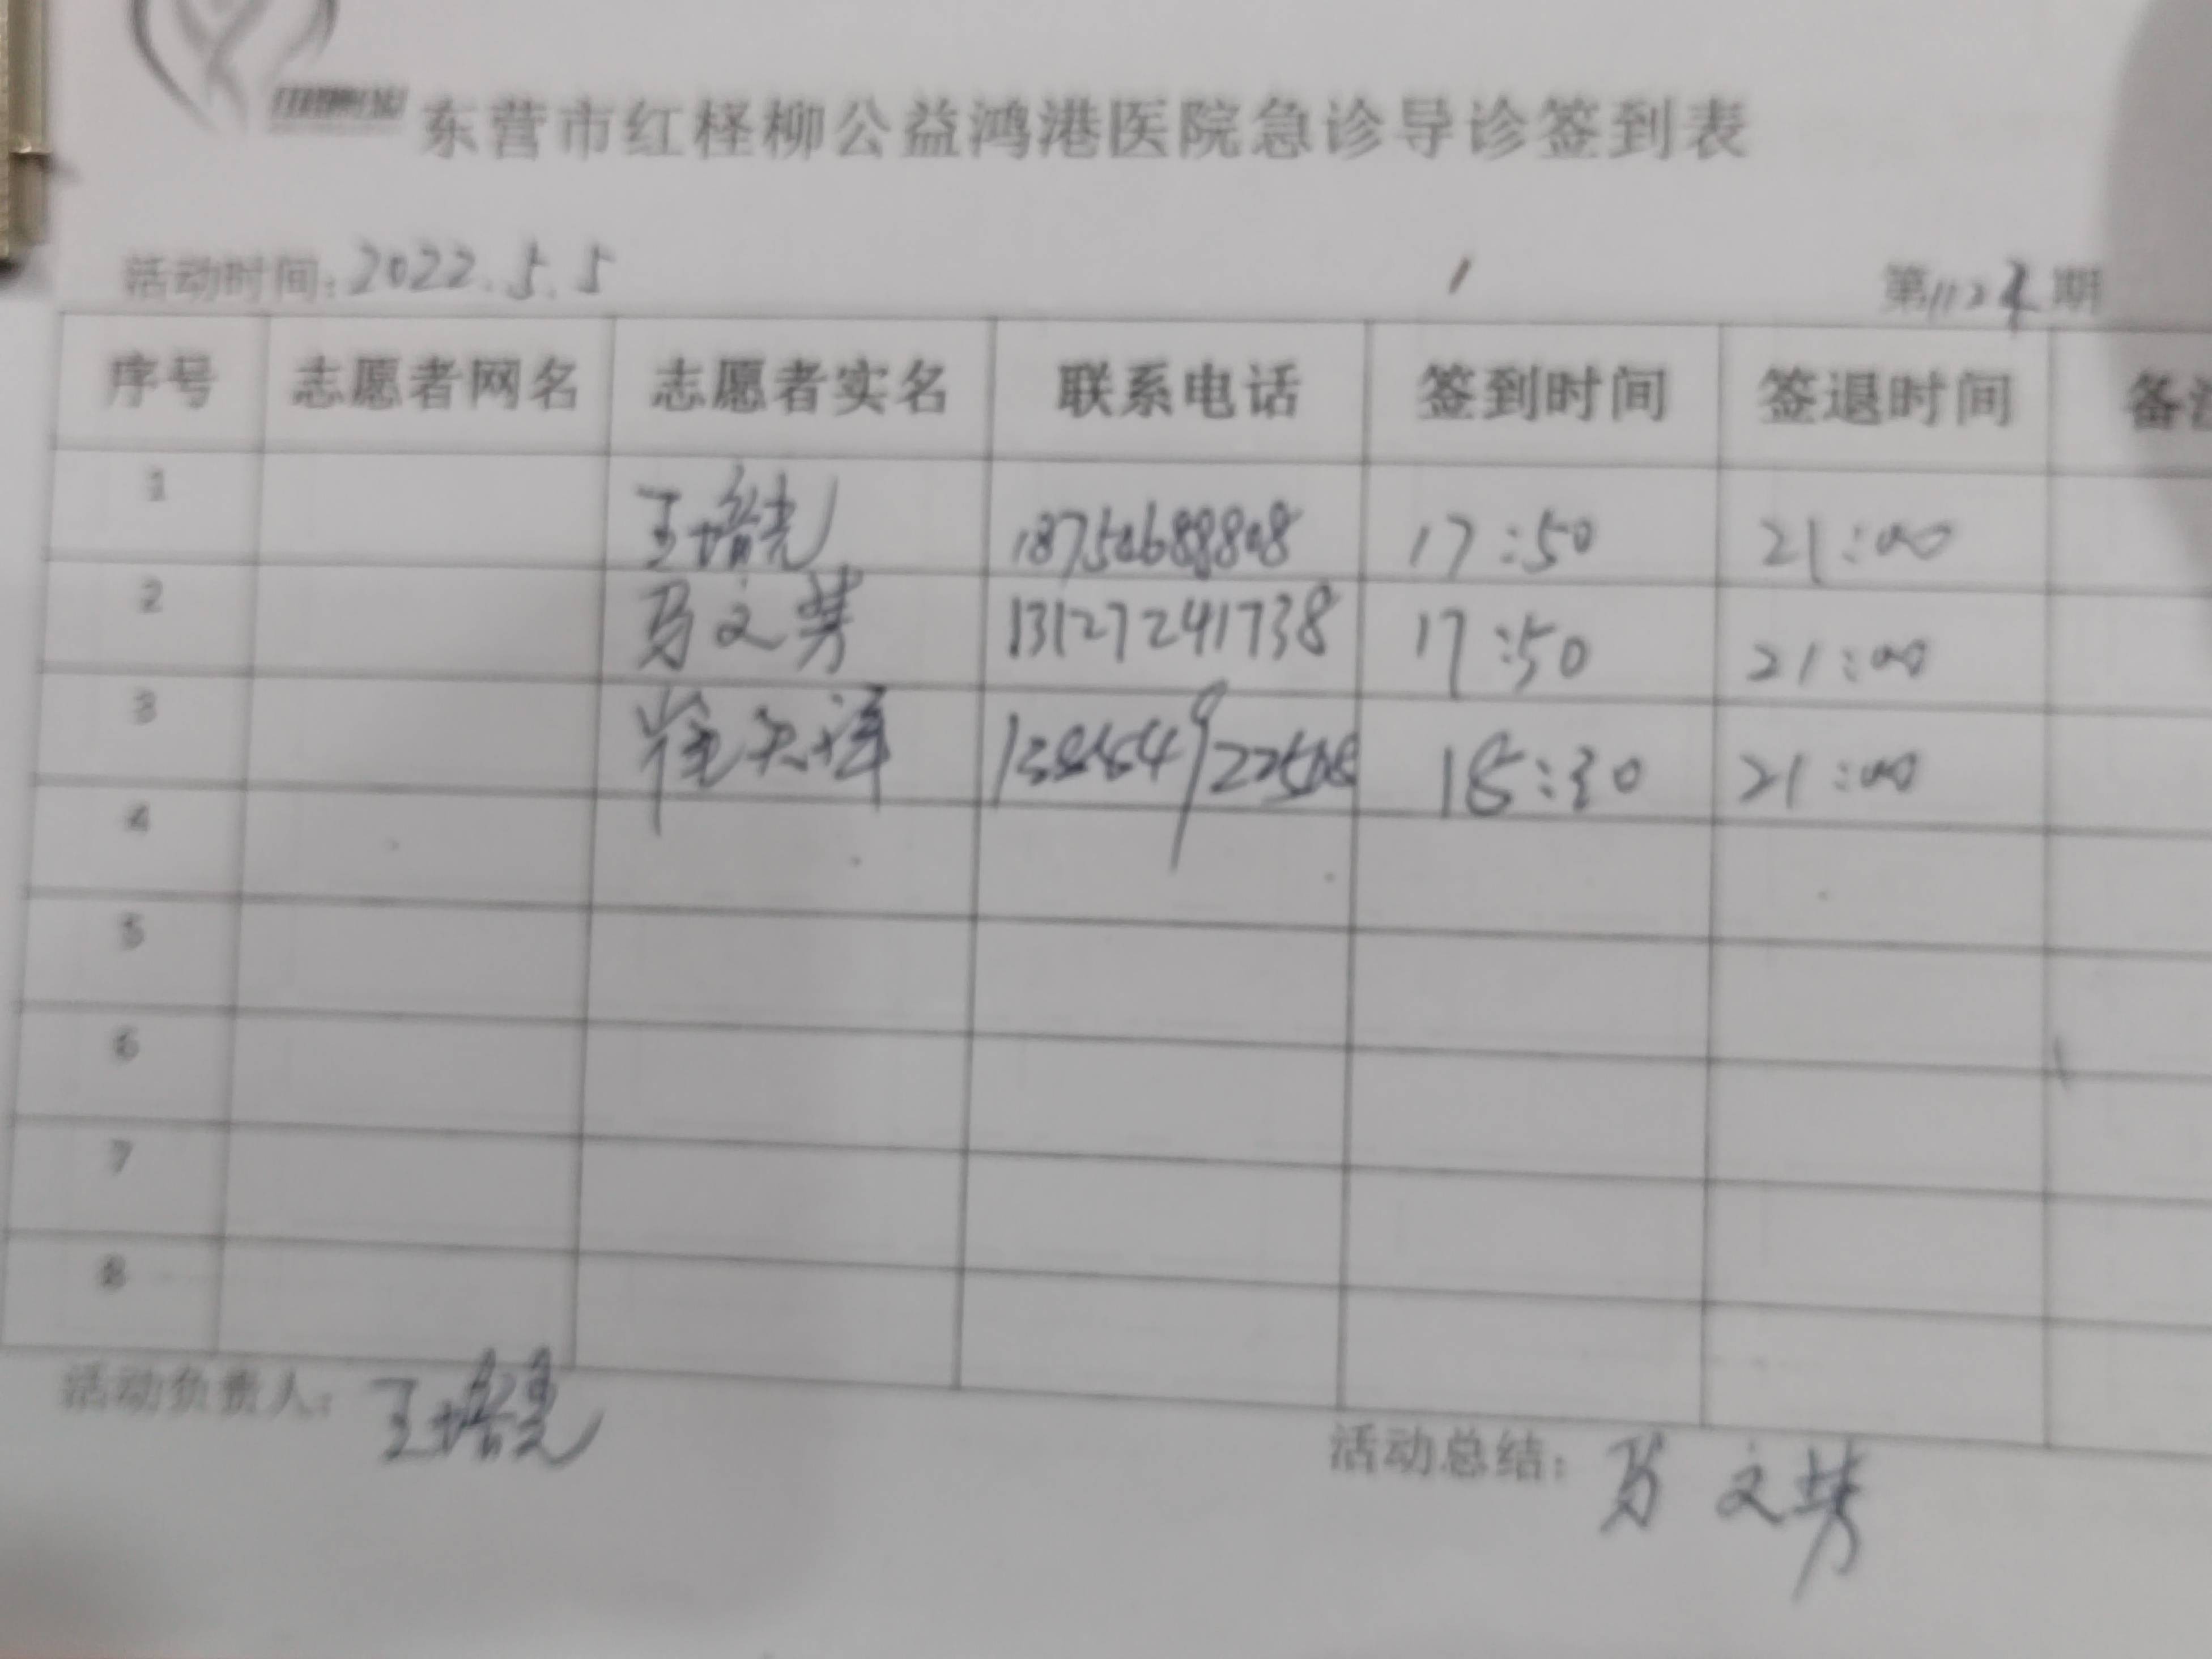 东营市红柽柳公益鸿港医院急诊导诊签到表
活动时间: 2022.5.5 第1124期
序号 志愿者网名 志愿者实名 联系电话 签到时间 签退时间 备注
1 王培亮 18750688808 17:50 21:00
2 马文芳 13127241738 17:50 21:00
3 18:30 21:00
4
5
6
7
8
活动负责人: 王培亮
活动总结: 马文芳